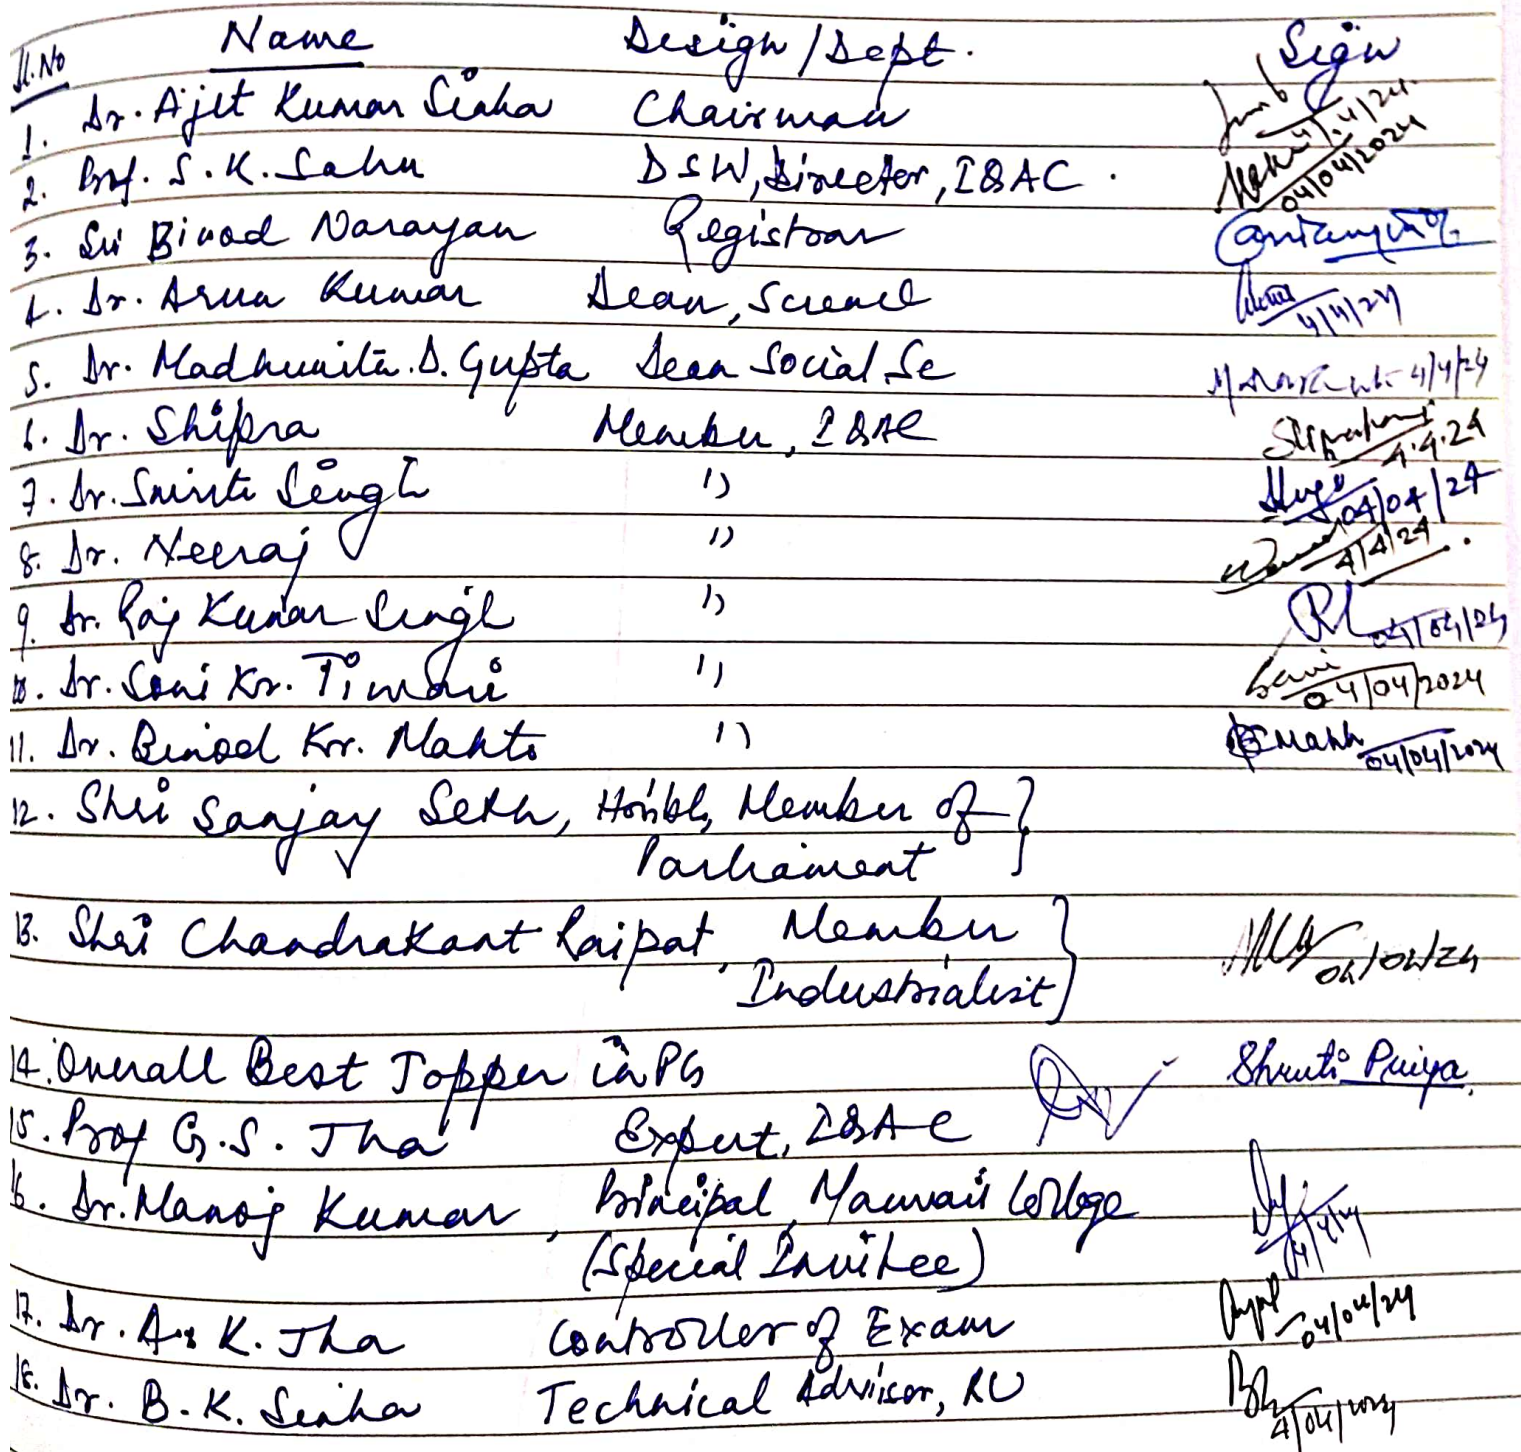 Sl.No Name Design/Dept. Sign
1. Dr. Ajit Kumar Sinha Chairman 4/4/24.
2. Prof. S. K. Sahu DSW, Director, IQAC. 04/04/2024
3. Sri Binod Narayan Registrar
4. Dr. Arun Kumar Dean, Science 4/4/24
5. Dr. Madhumita. D. Gupta Dean Social Sc 4/4/24
6. Dr. Shipra Member, IQAC 4.4.24
7. Dr. Smriti Singh 1) 04/04/24
8. Dr. Neeraj 1) 4/4/24
9. Dr. Raj Kumar Singh 1) 04/04/24
10. Dr. Soni Kr. Tiwari 1) 04/04/2024
11. Dr. Binod Kr. Mahto 1) 04/04/2024
12. Shri Sanjay Seth, Hon'ble, Member of
Parliament
13. Shri Chandrakant Raipat, Member 04/04/24
Industrialist
14. Overall Best Topper in PG Shruti Priya
15. Prof G. S. Jha Expert, IQAC
16. Dr. Manoj Kumar, Principal, Marwari College 4/4/24
(Special Invitee)
17. Dr. A. K. Jha Controller of Exam 04/04/24
18. Dr. B. K. Sinha Technical Advisor, RU 4/04/2024